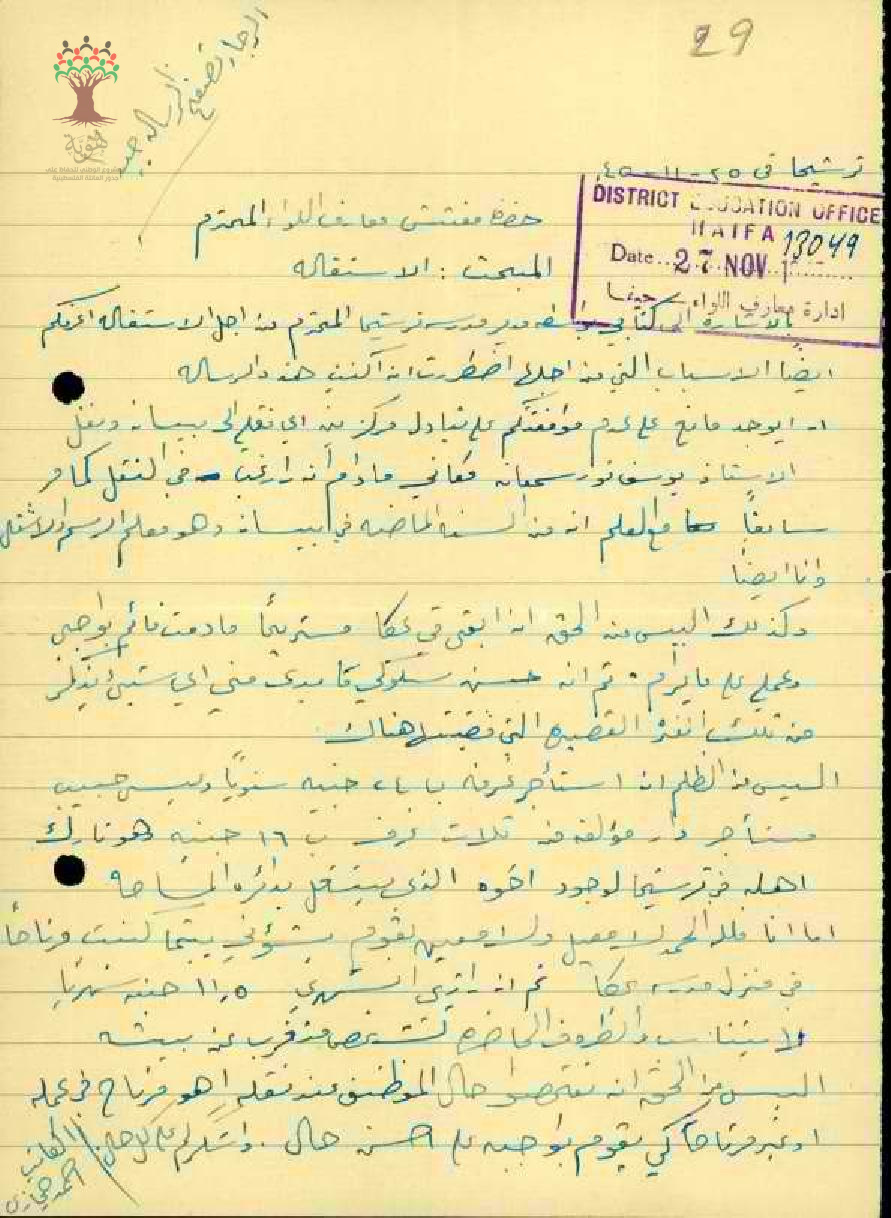 29
الرجاء
ترشيحا في ٢٥-١١-٤٥
DISTRICT EDUCATION OFFICE
HAIFA
13049
Date 27 NOV
ادارة معارف اللواء - حيفا
حضرة مفتش معارف اللواء المحترم
المبحث : الاستقاله
بالاشارة الى كتابي بواسطة مدير مدرسه ترشيحا المحترم من اجل الاستقاله اعرفكم
ايضا الاسباب التي من اجلها اضطررت ان اكتب هذه الرساله
يوجد مانع على عدم موافقتكم على تبادل مركز اي نقلي الى بيسان ونقل
الاستاذ يوسف نور سمعان مكاني ما دام انه راغب في النقل كما
سابقاً مع العلم انه من السنه الماضيه في بيسان وهو معلم الرسم والاشغال
وانا ايضاً
وكذلك اليس من الحق ان ابقى في عكا مستريحاً ما دمت قائم بواجبي
وعملي على ما يرام . ثم انه حسن سلوكي ما بدى مني اي شيئ يذكر
من تلك الفتره القصيره التي قضيتها هناك
اليس من الظلم ان استأجر غرفه جنيه سنوياً وليس حبيب
مستأجر دار مؤلفه من ثلاث غرف ب ١٦ جنيه وهو تارك
اهله في ترشيحا لوجود اخوه الذي يشتغل بدائره المساحه
اما انا فلله الحمد لا معيل ولا معين يقوم بشؤني بينما كنت مرتاحاً
في منزل مدرسه عكا ثم ان راتبي الشهري ١١,٥ جنيه شهرياً
لا يتناسب والظروف الحاضره لشخص متغرب عن بيته
اليس من الحق ان حال الموظف عند نقله اهو مرتاح في عمله
او غير مرتاحاً كي يقوم بواجبه على احسن حال . واشكركم على كل حال
الكاتب
احمد حجازي